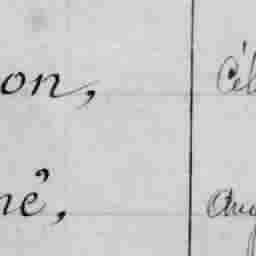 on, Cél
né, Aug